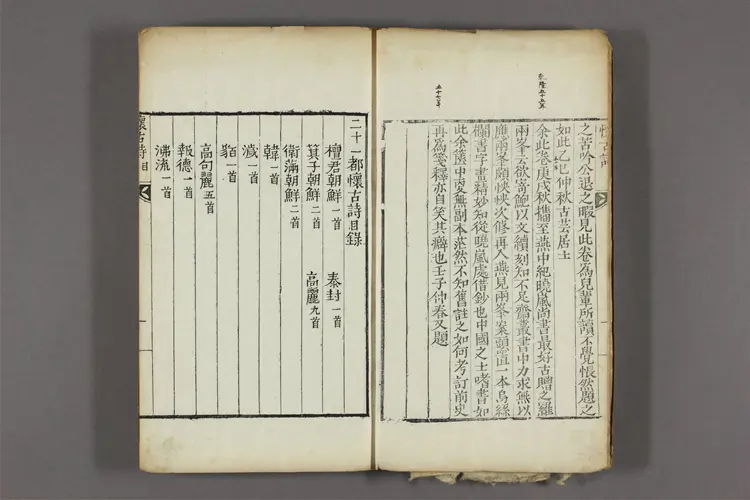 懷古詩
乾隆五十五年
五十七年
之苦吟公退之暇見此卷為兒輩所讀不覺悵然題之
如此乙巳仲秋古芸居士
余此卷庚戌秋攜至燕中紀曉嵐尚書最好古贈之羅
兩峯云欲寄鮑以文續刻知不足齋叢書中力求無以
應兩峯頗怏怏次修再入燕見兩峯案頭置一本烏絲
欄書字畫精妙知從曉嵐處借鈔也中國之士嗜書如
此余篋中更無副本茫然不知舊註之如何考訂前史
再為箋釋亦自笑其癖也壬子仲春又題
二十一都懷古詩目錄
檀君朝鮮一首 泰封一首
箕子朝鮮二首 高麗九首
衛滿朝鮮二首
韓一首
濊一首
貊一首
高句麗五首
報德一首
沸流一首
懷古詩目